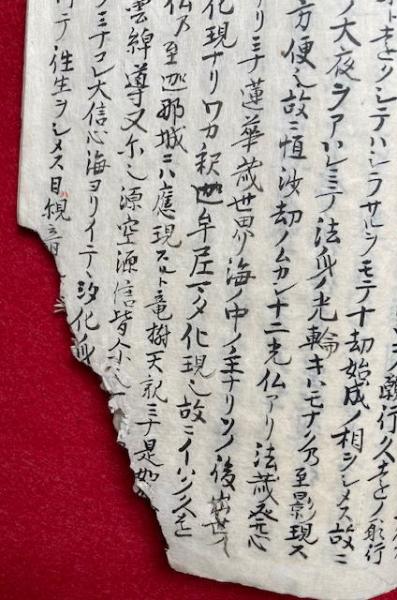 ノ願行久
クシテハシラサルヲモテ十劫始成ノ相ヲシメス故ニ
ノ大夜ヲアハレミテ法身ノ光輪キハモナク乃至影現ス
方便也故ニ恒沙劫ノムカシ十二光仏アリ法蔵発心
リミナ蓮華蔵世界海ノ中ノ主ナリソノ後
化現ナリワカ釈迦牟尼マタ化現也故ニイハク久遠
仏乃至迦耶城ニハ應現スルト竜樹天親ミナ是如
雲綽導又尓也源空源信皆尓也
ミナコレ大信心海ヨリイテヽ化身
テ往生ヲシメス